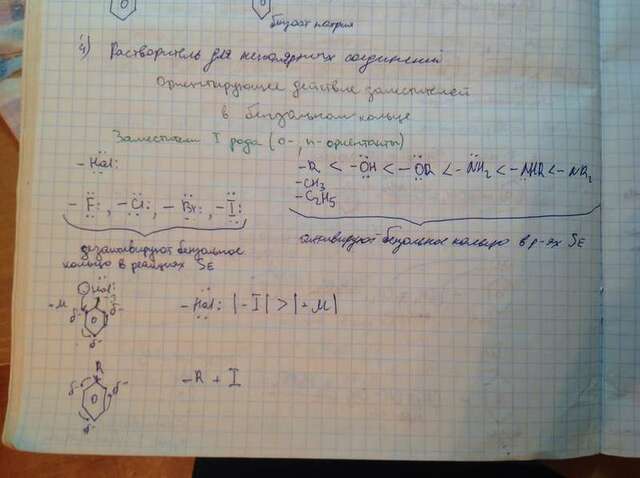 бензоат натрия
4) Растворитель для неполярных соединений
Ориентирующее действие заместителей
в бензольном кольце
Заместители I рода (о-, п-ориентанты)
-Hal:
-R < -ÖH < -ÖR < -N̈H₂ < -N̈HR < -NR₂
-CH₃
-C₂H₅
-F:, -Cl:, -Br:, -I:
дезактивируют бензольное
кольцо в реакциях SE
активируют бензольное кольцо в р-ях SE
Hal:
δ- δ-
δ-
-Hal: |-I| > |+M|
R
δ- δ-
δ-
-R + I